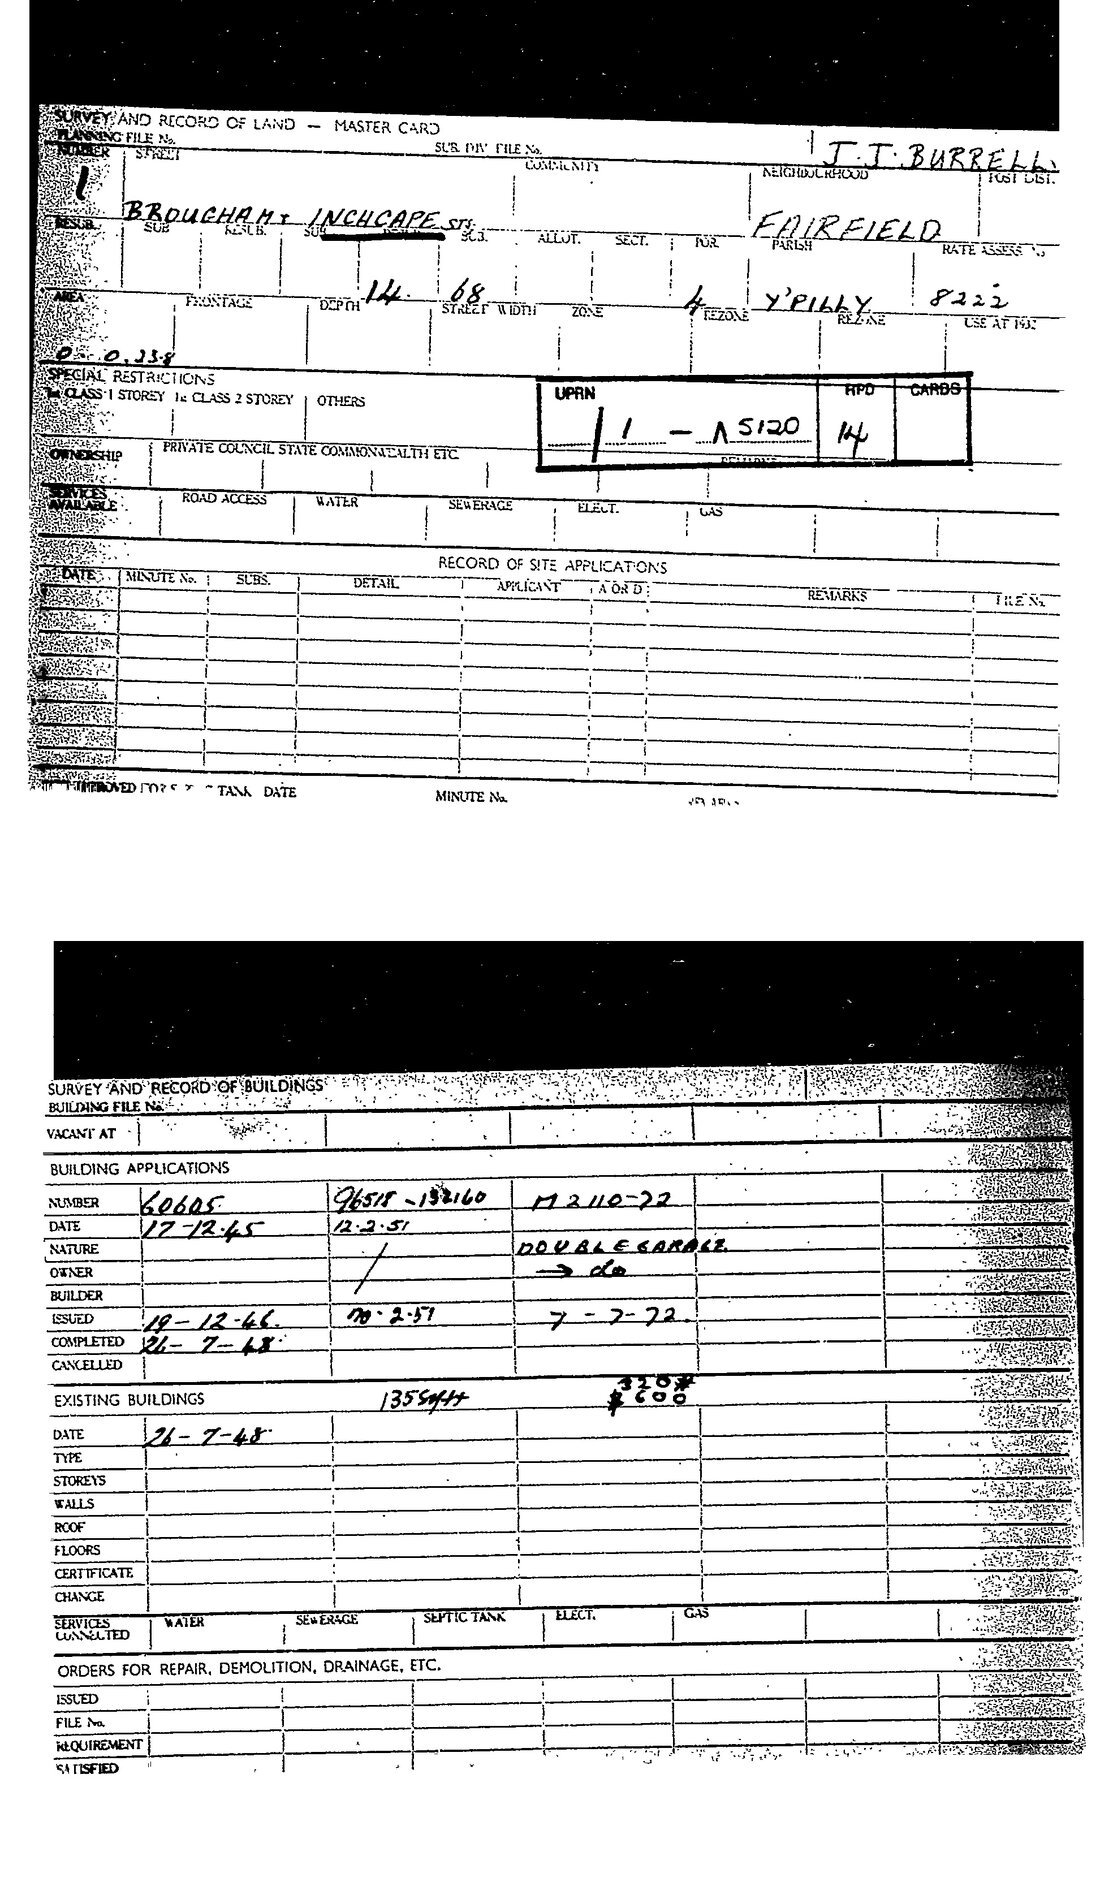 SURVEY AND RECORD OF LAND — MASTER CARD
PLANNING FILE No. SUB. DIV. FILE No. J. J. BURRELL.
NUMBER STREET COMMUNITY NEIGHBOURHOOD POST DIST.
1 BROUGHAM & INCHCAPE STS. FAIRFIELD
RESUB. SUB RESUB. SUB. ALLOT. SECT. POR. PARISH RATE ASSESS No
14 68 4 Y'PILLY 8222
AREA FRONTAGE DEPTH STREET WIDTH ZONE REZONE REZONE USE AT 1932
0 - 0.23.8
SPECIAL RESTRICTIONS
1st CLASS 1 STOREY 1st CLASS 2 STOREY OTHERS
UPRN RPD CARDS
1 — 5120 14
OWNERSHIP PRIVATE COUNCIL STATE COMMONWEALTH ETC. REMARKS
SERVICES AVAILABLE ROAD ACCESS WATER SEWERAGE ELECT. GAS
RECORD OF SITE APPLICATIONS
DATE MINUTE No. SUBS. DETAIL APPLICANT A OR D REMARKS FILE No.
APPROVED FOR TANK DATE MINUTE No.
SURVEY AND RECORD OF BUILDINGS
BUILDING FILE No.
VACANT AT
BUILDING APPLICATIONS
NUMBER 60605 96518 - 132160 M 2110-72
DATE 17-12-45 12.2.51
NATURE DOUBLE GARAGE
OWNER → do
BUILDER
ISSUED 19-12-46. 2.51 7-7-72.
COMPLETED 26-7-48.
CANCELLED
EXISTING BUILDINGS 135 sq ft 320 $600
DATE 26-7-48
TYPE
STOREYS
WALLS
ROOF
FLOORS
CERTIFICATE
CHANGE
SERVICES CONNECTED WATER SEWERAGE SEPTIC TANK ELECT. GAS
ORDERS FOR REPAIR, DEMOLITION, DRAINAGE, ETC.
ISSUED
FILE No.
REQUIREMENT
SATISFIED